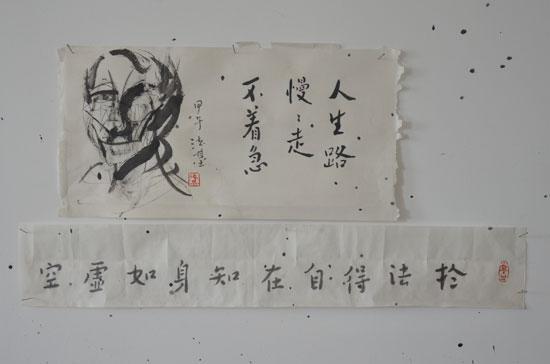 人生路
慢々走
不着急
甲午
於法得自在知身如虛空